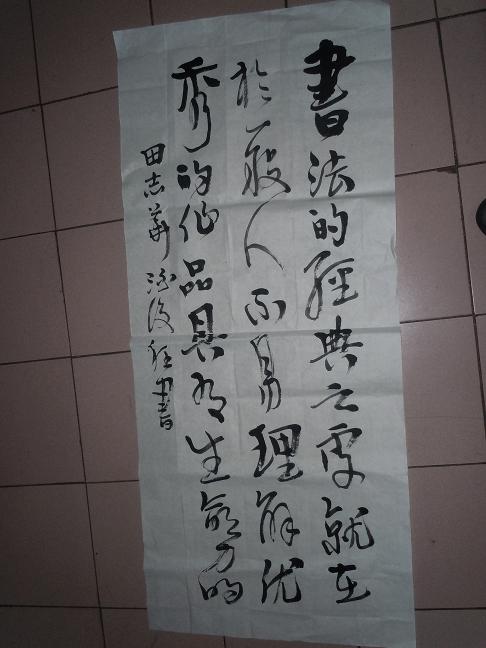 書法的經典之處就在
於一般人不易理解优
秀的作品具有生命力的
田志華酒後狂書